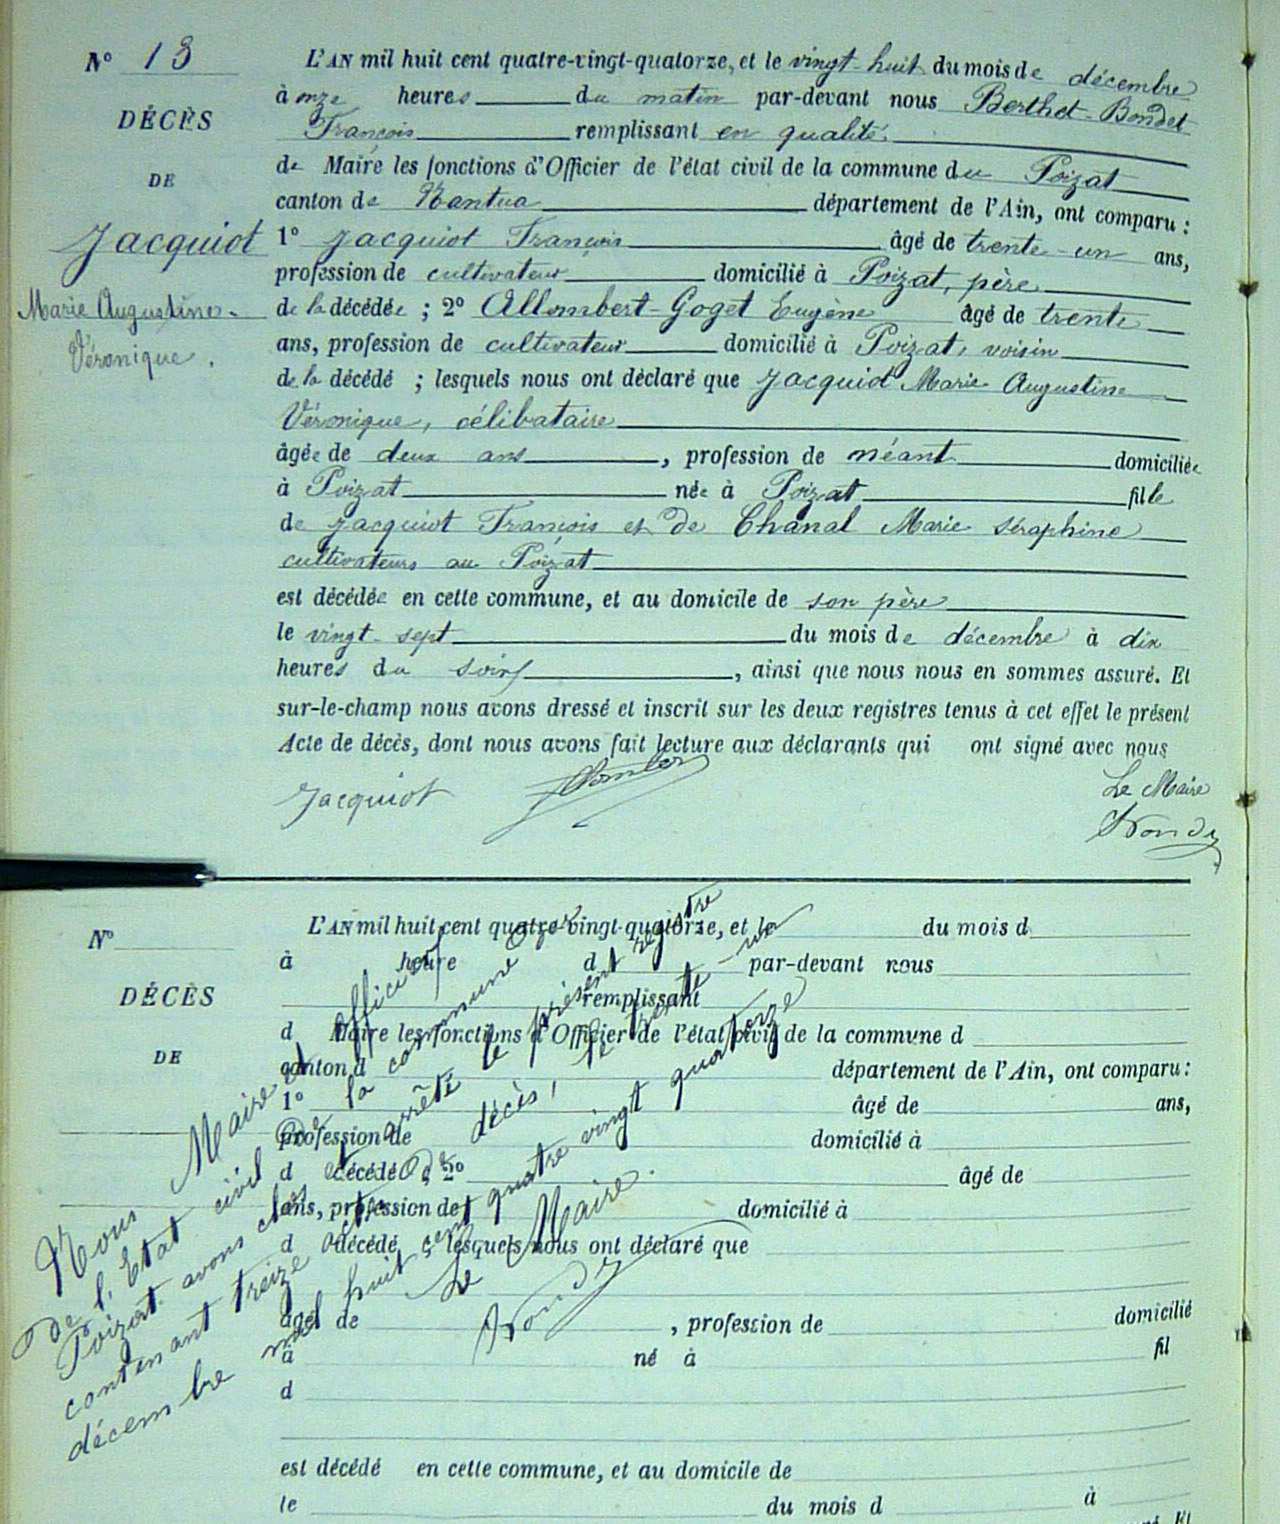 N° 13
DÉCÈS
DE
Jacquiot
Marie Augustine
Véronique.
L'AN mil huit cent quatre-vingt-quatorze, et le vingt huit du mois de décembre
à onze heures du matin par-devant nous Berthet-Bondet
François remplissant en qualité
de Maire les fonctions d'Officier de l'état civil de la commune du Poizat
canton de Nantua département de l'Ain, ont comparu :
1° Jacquiot François âgé de trente-un ans,
profession de cultivateur domicilié à Poizat, père
de la décédée ; 2° Allombert-Goget Eugène âgé de trente
ans, profession de cultivateur domicilié à Poizat, voisin
de la décédé ; lesquels nous ont déclaré que Jacquiot Marie Augustine
Véronique, célibataire
âgée de deux ans, profession de néant domiciliée
à Poizat née à Poizat fille
de Jacquiot François et de Chanal Marie Séraphine
cultivateurs au Poizat
est décédée en cette commune, et au domicile de son père
le vingt-sept du mois de décembre à dix
heures du soir, ainsi que nous nous en sommes assuré. Et
sur-le-champ nous avons dressé et inscrit sur les deux registres tenus à cet effet le présent
Acte de décès, dont nous avons fait lecture aux déclarants qui ont signé avec nous
Jacquiot
Le Maire
N°
DÉCÈS
DE
L'AN mil huit cent quatre-vingt-quatorze, et le du mois d
à heure d par-devant nous
remplissant
d Maire les fonctions d'Officier de l'état civil de la commune d
canton d département de l'Ain, ont comparu :
1° âgé de ans,
profession de domicilié à
d décédé ; 2° âgé de
ans, profession de domicilié à
d décédé ; lesquels nous ont déclaré que
âgé de , profession de domicilié
à né à fil
d
est décédé en cette commune, et au domicile de
le du mois d à
Et
Nous Maire et officier
de l'Etat civil de la commune du
Poizat avons clos et arrêté le présent registre
contenant treize actes de décès, le trente-un
décembre mil huit cent quatre vingt quatorze
Le Maire.